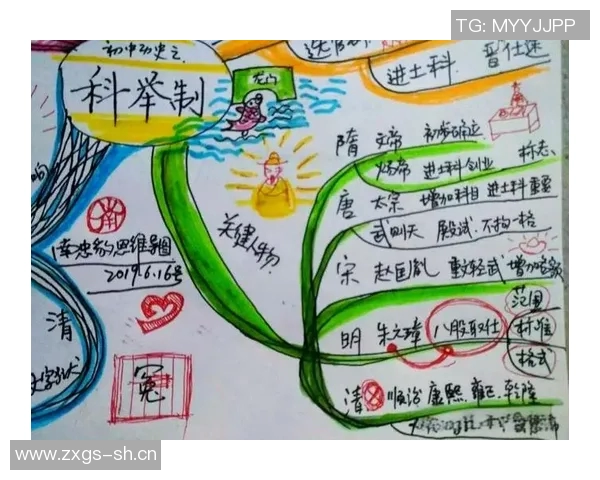 TG: MYYJJPP
初中历史之
科举制
龙门
进士科 晋仕途
关键人物
隋 文帝 初步确立
炀帝 进士科创业 标志
唐 太宗 增加科目 进士科重要
武则天 殿试 不拘一格
宋 赵匡胤 重文轻武 增加名额
明 朱元璋 八股取仕
范围
标准
格式
清 顺治 康熙 雍正 乾隆
思维导图
2019.6.16号
清
文字狱
冤
www.zxgs-sh.cn